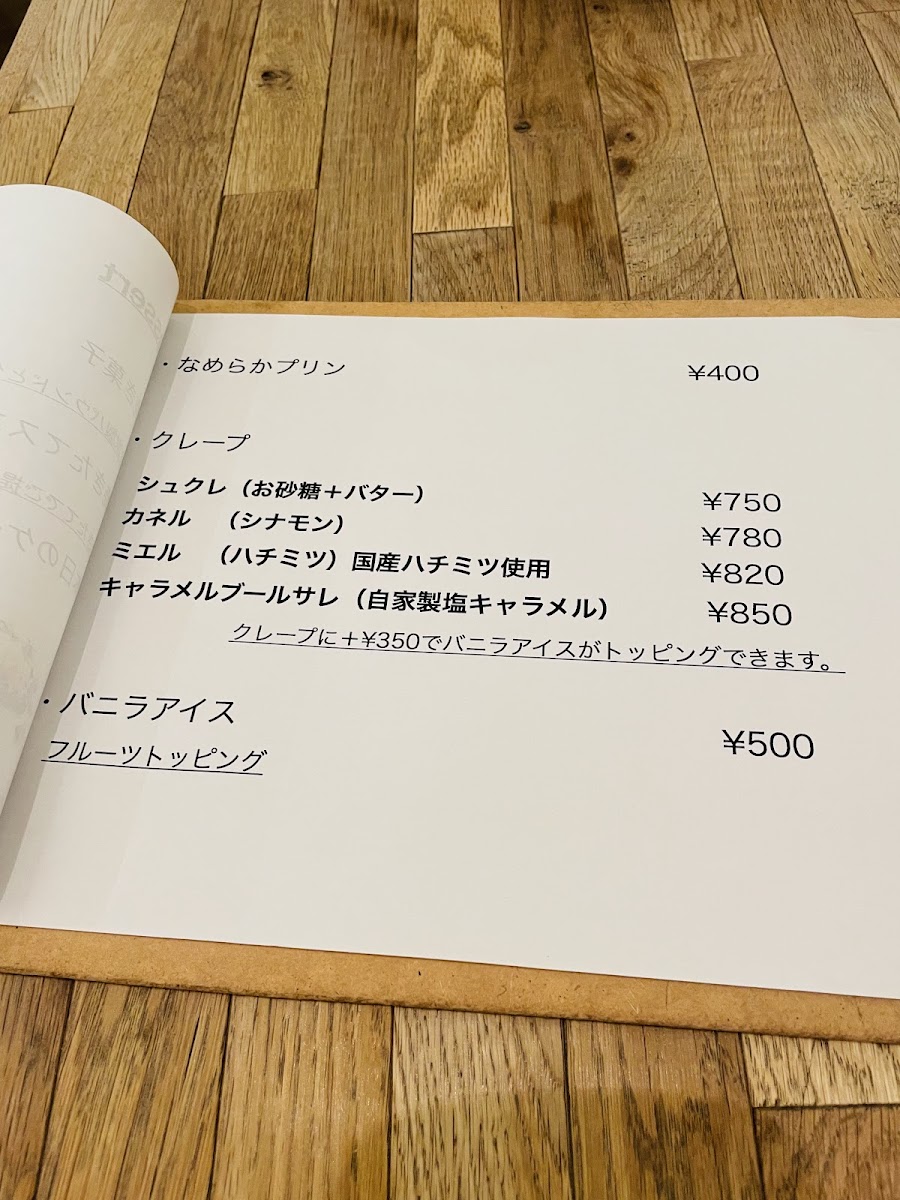 ・なめらかプリン ¥400
・クレープ
シュクレ（お砂糖＋バター） ¥750
カネル （シナモン） ¥780
ミエル （ハチミツ）国産ハチミツ使用 ¥820
キャラメルブールサレ（自家製塩キャラメル） ¥850
クレープに＋¥350でバニラアイスがトッピングできます。
・バニラアイス ¥500
フルーツトッピング